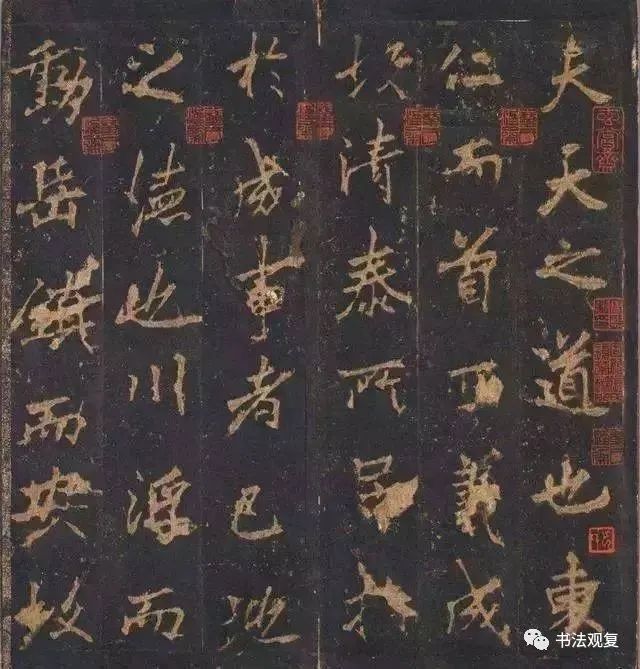 夫天之道也東
仁而首西義成
故清泰所
於成事者已地
之德也川浮而
動岳鎮而安故
书法观复